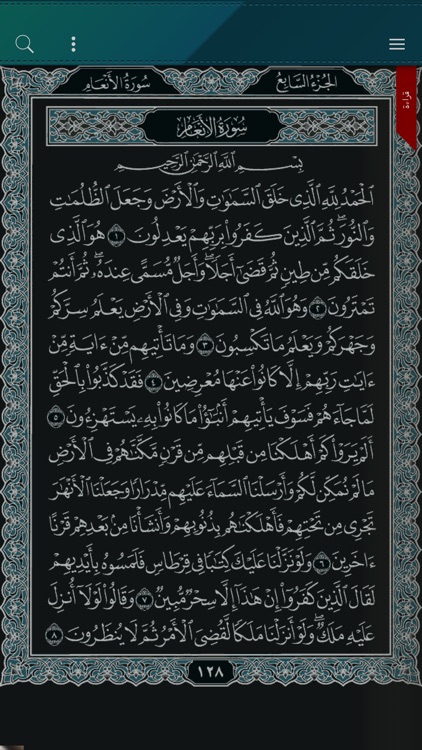 سُورَةُ الأَنْعَامِ
الجُزْءُ السَّابِعُ
قراءة
سُورَةُ الأَنْعَامِ
بِسْمِ ٱللَّهِ ٱلرَّحْمَٰنِ ٱلرَّحِيمِ
ٱلْحَمْدُ لِلَّهِ ٱلَّذِى خَلَقَ ٱلسَّمَٰوَٰتِ وَٱلْأَرْضَ وَجَعَلَ ٱلظُّلُمَٰتِ
وَٱلنُّورَ ۖ ثُمَّ ٱلَّذِينَ كَفَرُوا۟ بِرَبِّهِمْ يَعْدِلُونَ ١ هُوَ ٱلَّذِى
خَلَقَكُم مِّن طِينٍ ثُمَّ قَضَىٰٓ أَجَلًا ۖ وَأَجَلٌ مُّسَمًّى عِندَهُۥ ۖ ثُمَّ أَنتُمْ
تَمْتَرُونَ ٢ وَهُوَ ٱللَّهُ فِى ٱلسَّمَٰوَٰتِ وَفِى ٱلْأَرْضِ ۖ يَعْلَمُ سِرَّكُمْ
وَجَهْرَكُمْ وَيَعْلَمُ مَا تَكْسِبُونَ ٣ وَمَا تَأْتِيهِم مِّنْ ءَايَةٍ مِّنْ
ءَايَٰتِ رَبِّهِمْ إِلَّا كَانُوا۟ عَنْهَا مُعْرِضِينَ ٤ فَقَدْ كَذَّبُوا۟ بِٱلْحَقِّ
لَمَّا جَآءَهُمْ ۖ فَسَوْفَ يَأْتِيهِمْ أَنۢبَٰٓؤُا۟ مَا كَانُوا۟ بِهِۦ يَسْتَهْزِءُونَ ٥
أَلَمْ يَرَوْا۟ كَمْ أَهْلَكْنَا مِن قَبْلِهِم مِّن قَرْنٍ مَّكَّنَّٰهُمْ فِى ٱلْأَرْضِ
مَا لَمْ نُمَكِّن لَّكُمْ وَأَرْسَلْنَا ٱلسَّمَآءَ عَلَيْهِم مِّدْرَارًا وَجَعَلْنَا ٱلْأَنْهَٰرَ
تَجْرِى مِن تَحْتِهِمْ فَأَهْلَكْنَٰهُم بِذُنُوبِهِمْ وَأَنشَأْنَا مِنۢ بَعْدِهِمْ قَرْنًا
ءَاخَرِينَ ٦ وَلَوْ نَزَّلْنَا عَلَيْكَ كِتَٰبًا فِى قِرْطَاسٍ فَلَمَسُوهُ بِأَيْدِيهِمْ
لَقَالَ ٱلَّذِينَ كَفَرُوٓا۟ إِنْ هَٰذَآ إِلَّا سِحْرٌ مُّبِينٌ ٧ وَقَالُوا۟ لَوْلَآ أُنزِلَ
عَلَيْهِ مَلَكٌ ۖ وَلَوْ أَنزَلْنَا مَلَكًا لَّقُضِىَ ٱلْأَمْرُ ثُمَّ لَا يُنظَرُونَ ٨
١٢٨